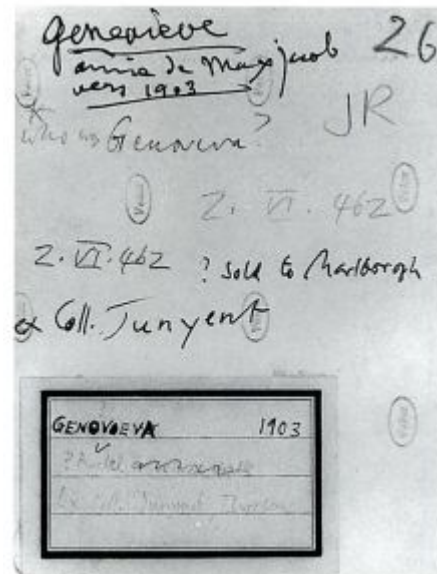 Geneviève 26
amie de Max Jacob
vers 1903
JR
who was Genoveva?
Z. VI. 462
Z. VI. 462 ? Sold to Marlborough
ex Coll. Junyent
GENOVOEVA 1903
Ex Coll. Junyent